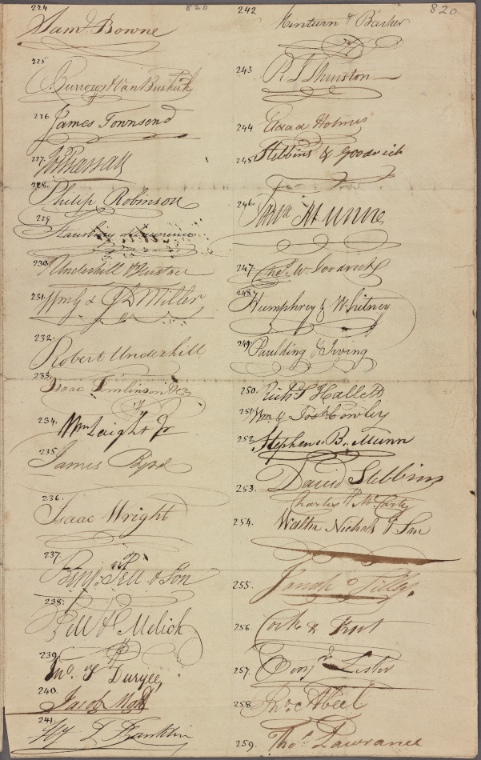 224 820
Saml Bowne
225
Van Buskirk
226 James Townsend
227.
228. Philip Robinson
229
Lawrence
230. Underhill &
231. Wm G & Miller
232.
Robert Underhill
233.
Isaac Tomlinson
234. Wm Laight Jr
235.
James Byrd
236.
Isaac Wright
237.
Benjn Pell & Son
238.
Pell & Melick
239.
Jno. Duryee
240.
Jacob
241.
Hy L Franklin
242 820
Minturn & Barker
243. R S Thurston
244 Eldad Holmes
245 Stebbins & Goodrich
246. David Munn
247. Chas. W. Goodrich
248 Humphrey & Whitney
249 Paulding & Irving
250. Richd S Hallett
251 Wm & Jos Cowley
252 Stephen B. Munn
253. David Stebbins
Charles McCarty
254. Walter Nichols & Son
255. Joseph Tilly
256 &
257. Benjn Lester
258 Jno. Abeel
259. Thos Lawrance